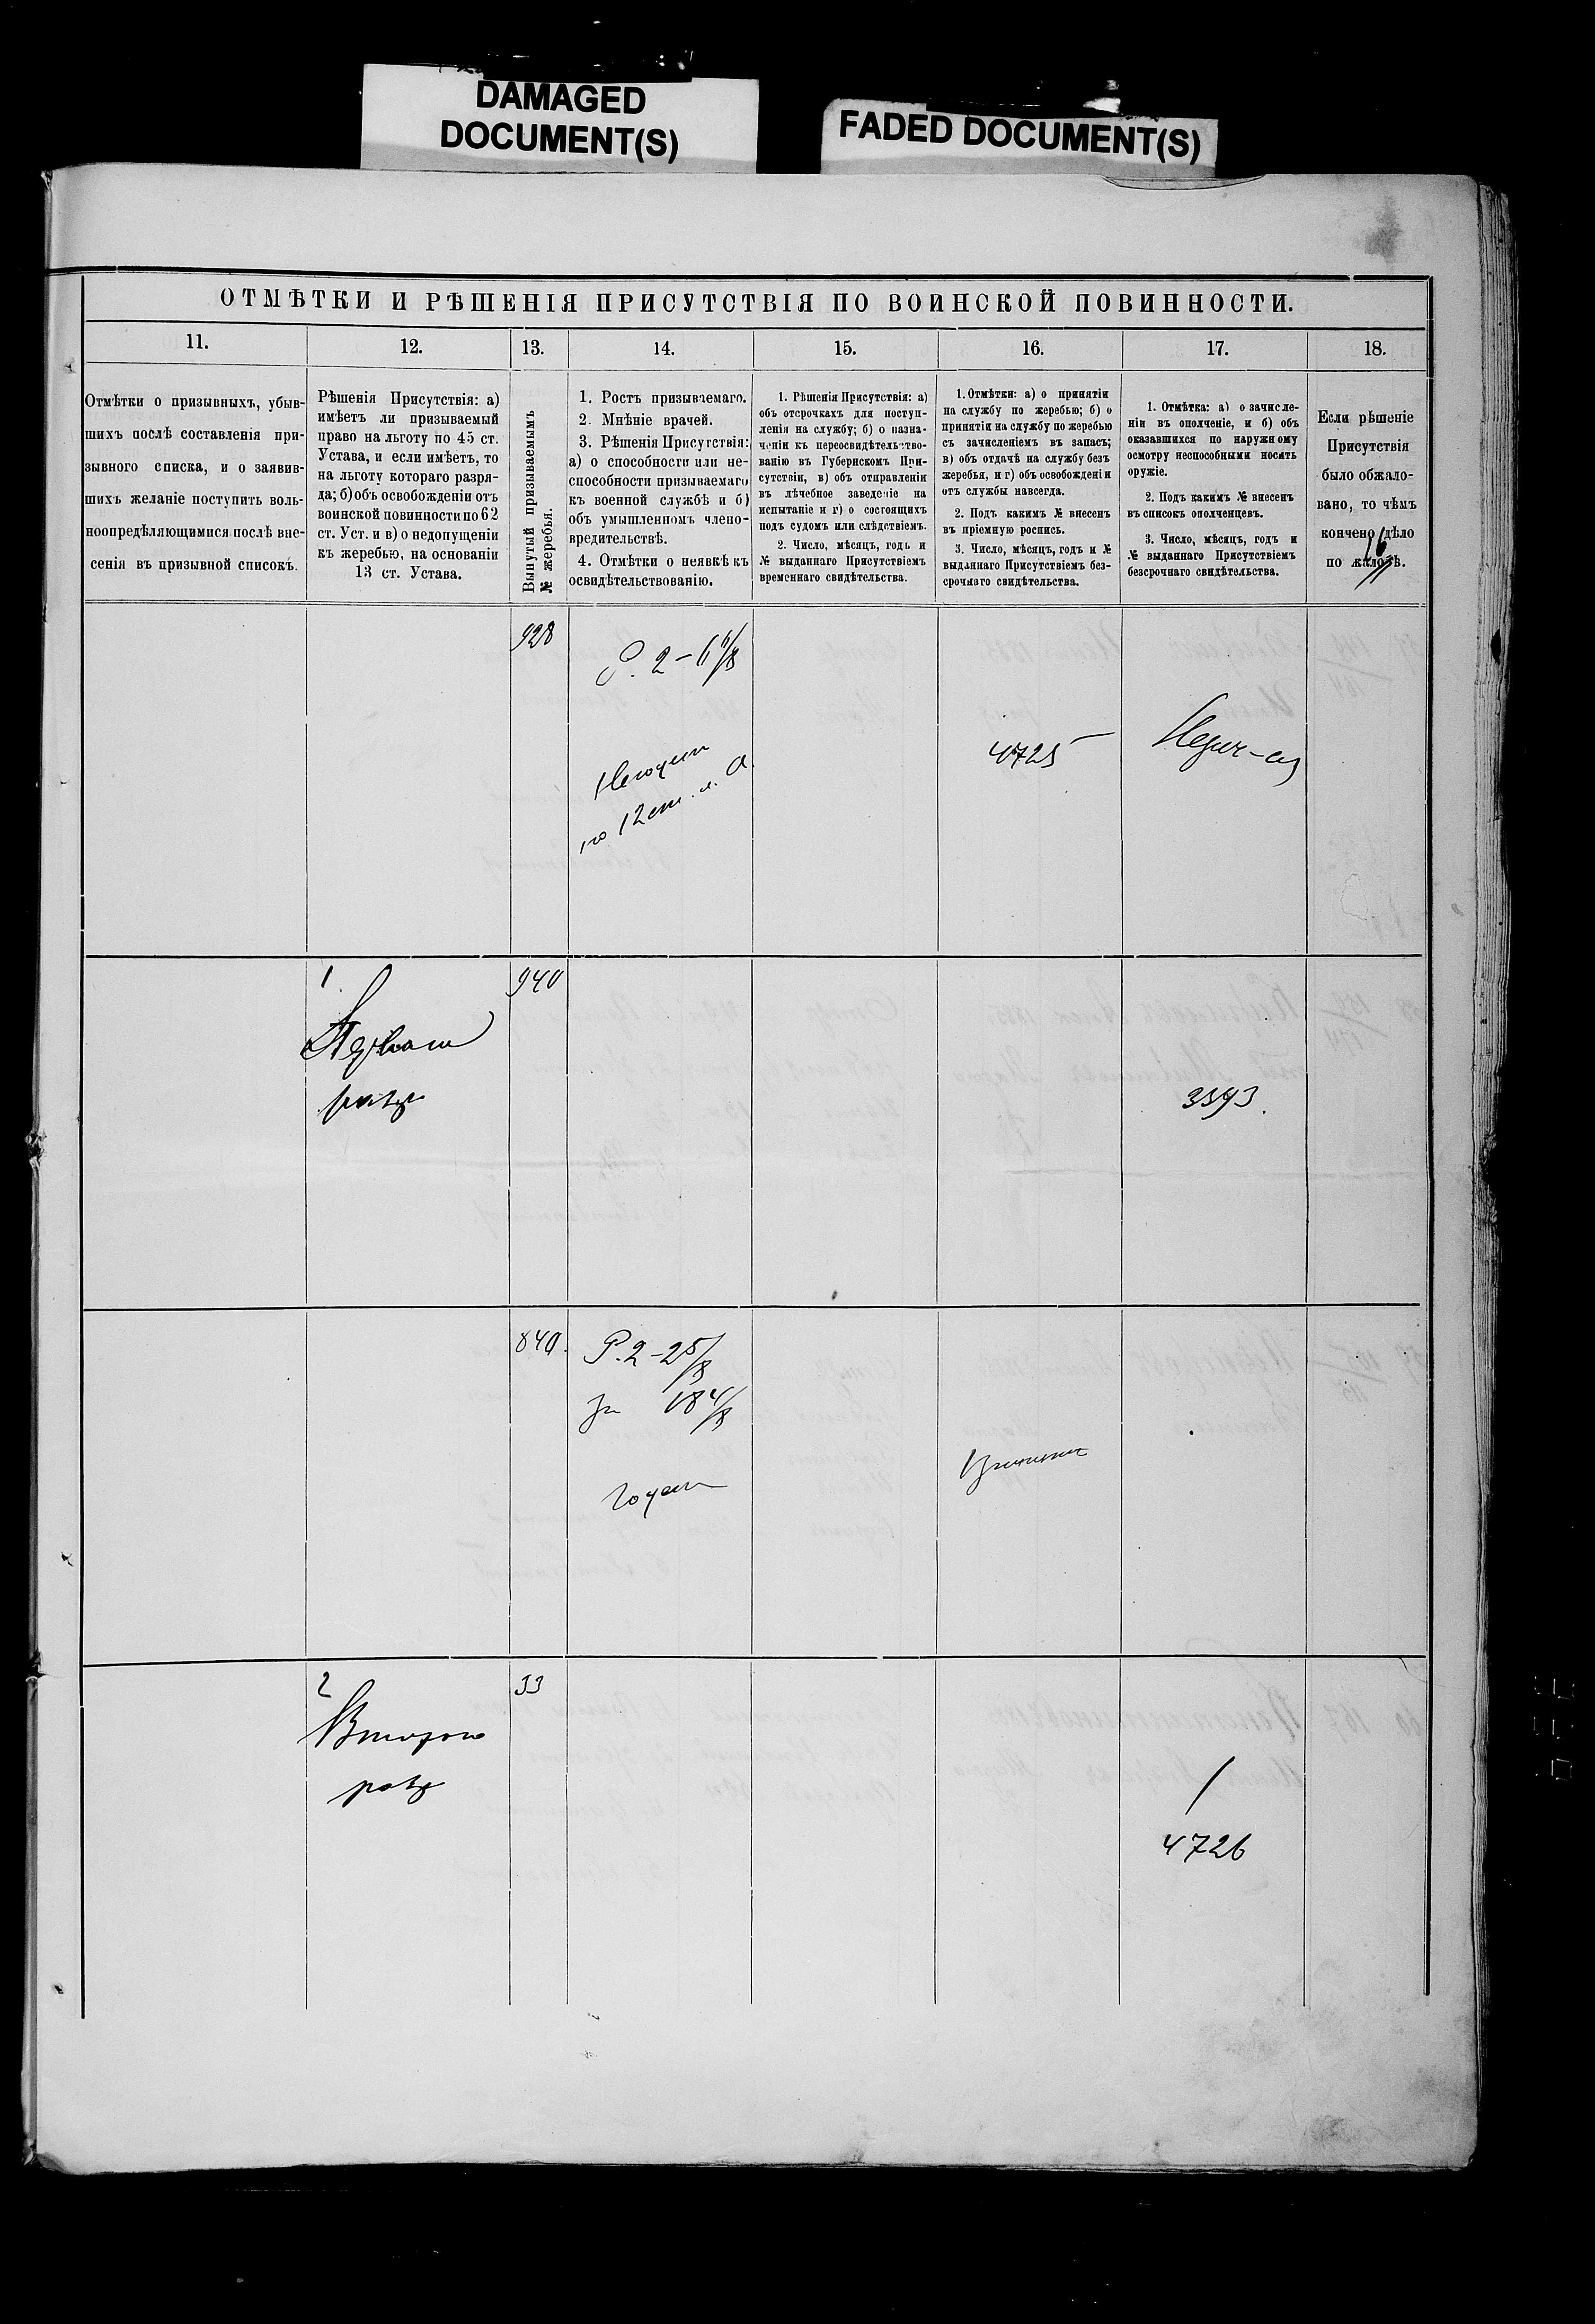 DAMAGED
DOCUMENT(S)
FADED DOCUMENT(S)
ОТМѢТКИ И РѢШЕНІЯ ПРИСУТСТВІЯ ПО ВОИНСКОЙ ПОВИННОСТИ.
11.
12.
13.
14.
15.
16.
17.
18.
Отмѣтки о призывныхъ, убыв-
шихъ послѣ составленія при-
зывного списка, и о заявив-
шихъ желаніе поступить воль-
ноопредѣляющимися послѣ вне-
сенія въ призывной списокъ.
Рѣшенія Присутствія: а)
имѣетъ ли призываемый
право на льготу по 45 ст.
Устава, и если имѣетъ, то
на льготу котораго разря-
да; б) объ освобожденіи отъ
воинской повинности по 62
ст. Уст. и в) о недопущеніи
къ жеребью, на основаніи
13 ст. Устава.
Вынутый призываемымъ
№ жеребья.
1. Ростъ призываемаго.
2. Мнѣніе врачей.
3. Рѣшенія Присутствія:
а) о способности или не-
способности призываемаго
къ военной службѣ и б)
объ умышленномъ члено-
вредительствѣ.
4. Отмѣтки о неявкѣ къ
освидѣтельствованію.
1. Рѣшенія Присутствія: а)
объ отсрочкахъ для поступ-
ленія на службу; б) о назна-
ченіи къ переосвидѣтельство-
ванію въ Губернскомъ При-
сутствіи, в) объ отправленіи
въ лѣчебное заведеніе на
испытаніе и г) о состоящихъ
подъ судомъ или слѣдствіемъ.
2. Число, мѣсяцъ, годъ и
№ выданнаго Присутствіемъ
временнаго свидѣтельства.
1. Отмѣтки: а) о принятіи
на службу по жеребью; б) о
принятіи на службу по жеребью
съ зачисленіемъ въ запасъ;
в) объ отдачѣ на службу безъ
жеребья, и г) объ освобожденіи
отъ службы навсегда.
2. Подъ какимъ № внесенъ
въ пріемную роспись.
3. Число, мѣсяцъ, годъ и №
выданнаго Присутствіемъ без-
срочнаго свидѣтельства.
1. Отмѣтка: а) о зачисле-
ніи въ ополченіе, и б) объ
оказавшихся по наружному
осмотру неспособными носить
оружіе.
2. Подъ какимъ № внесенъ
въ списокъ ополченцевъ.
3. Число, мѣсяцъ, годъ и
№ выданнаго Присутствіемъ
безсрочнаго свидѣтельства.
Если рѣшеніе
Присутствія
было обжало-
вано, то чѣмъ
кончено дѣло
по жалобѣ.
16
928
Р. 2 – 6
по 12 ст. л. А.
4725
940
1
разр
3593.
840.
Р. 2 – 2 5/8
гр 18 4/8
Годен
33
2
Второго
разр
4726